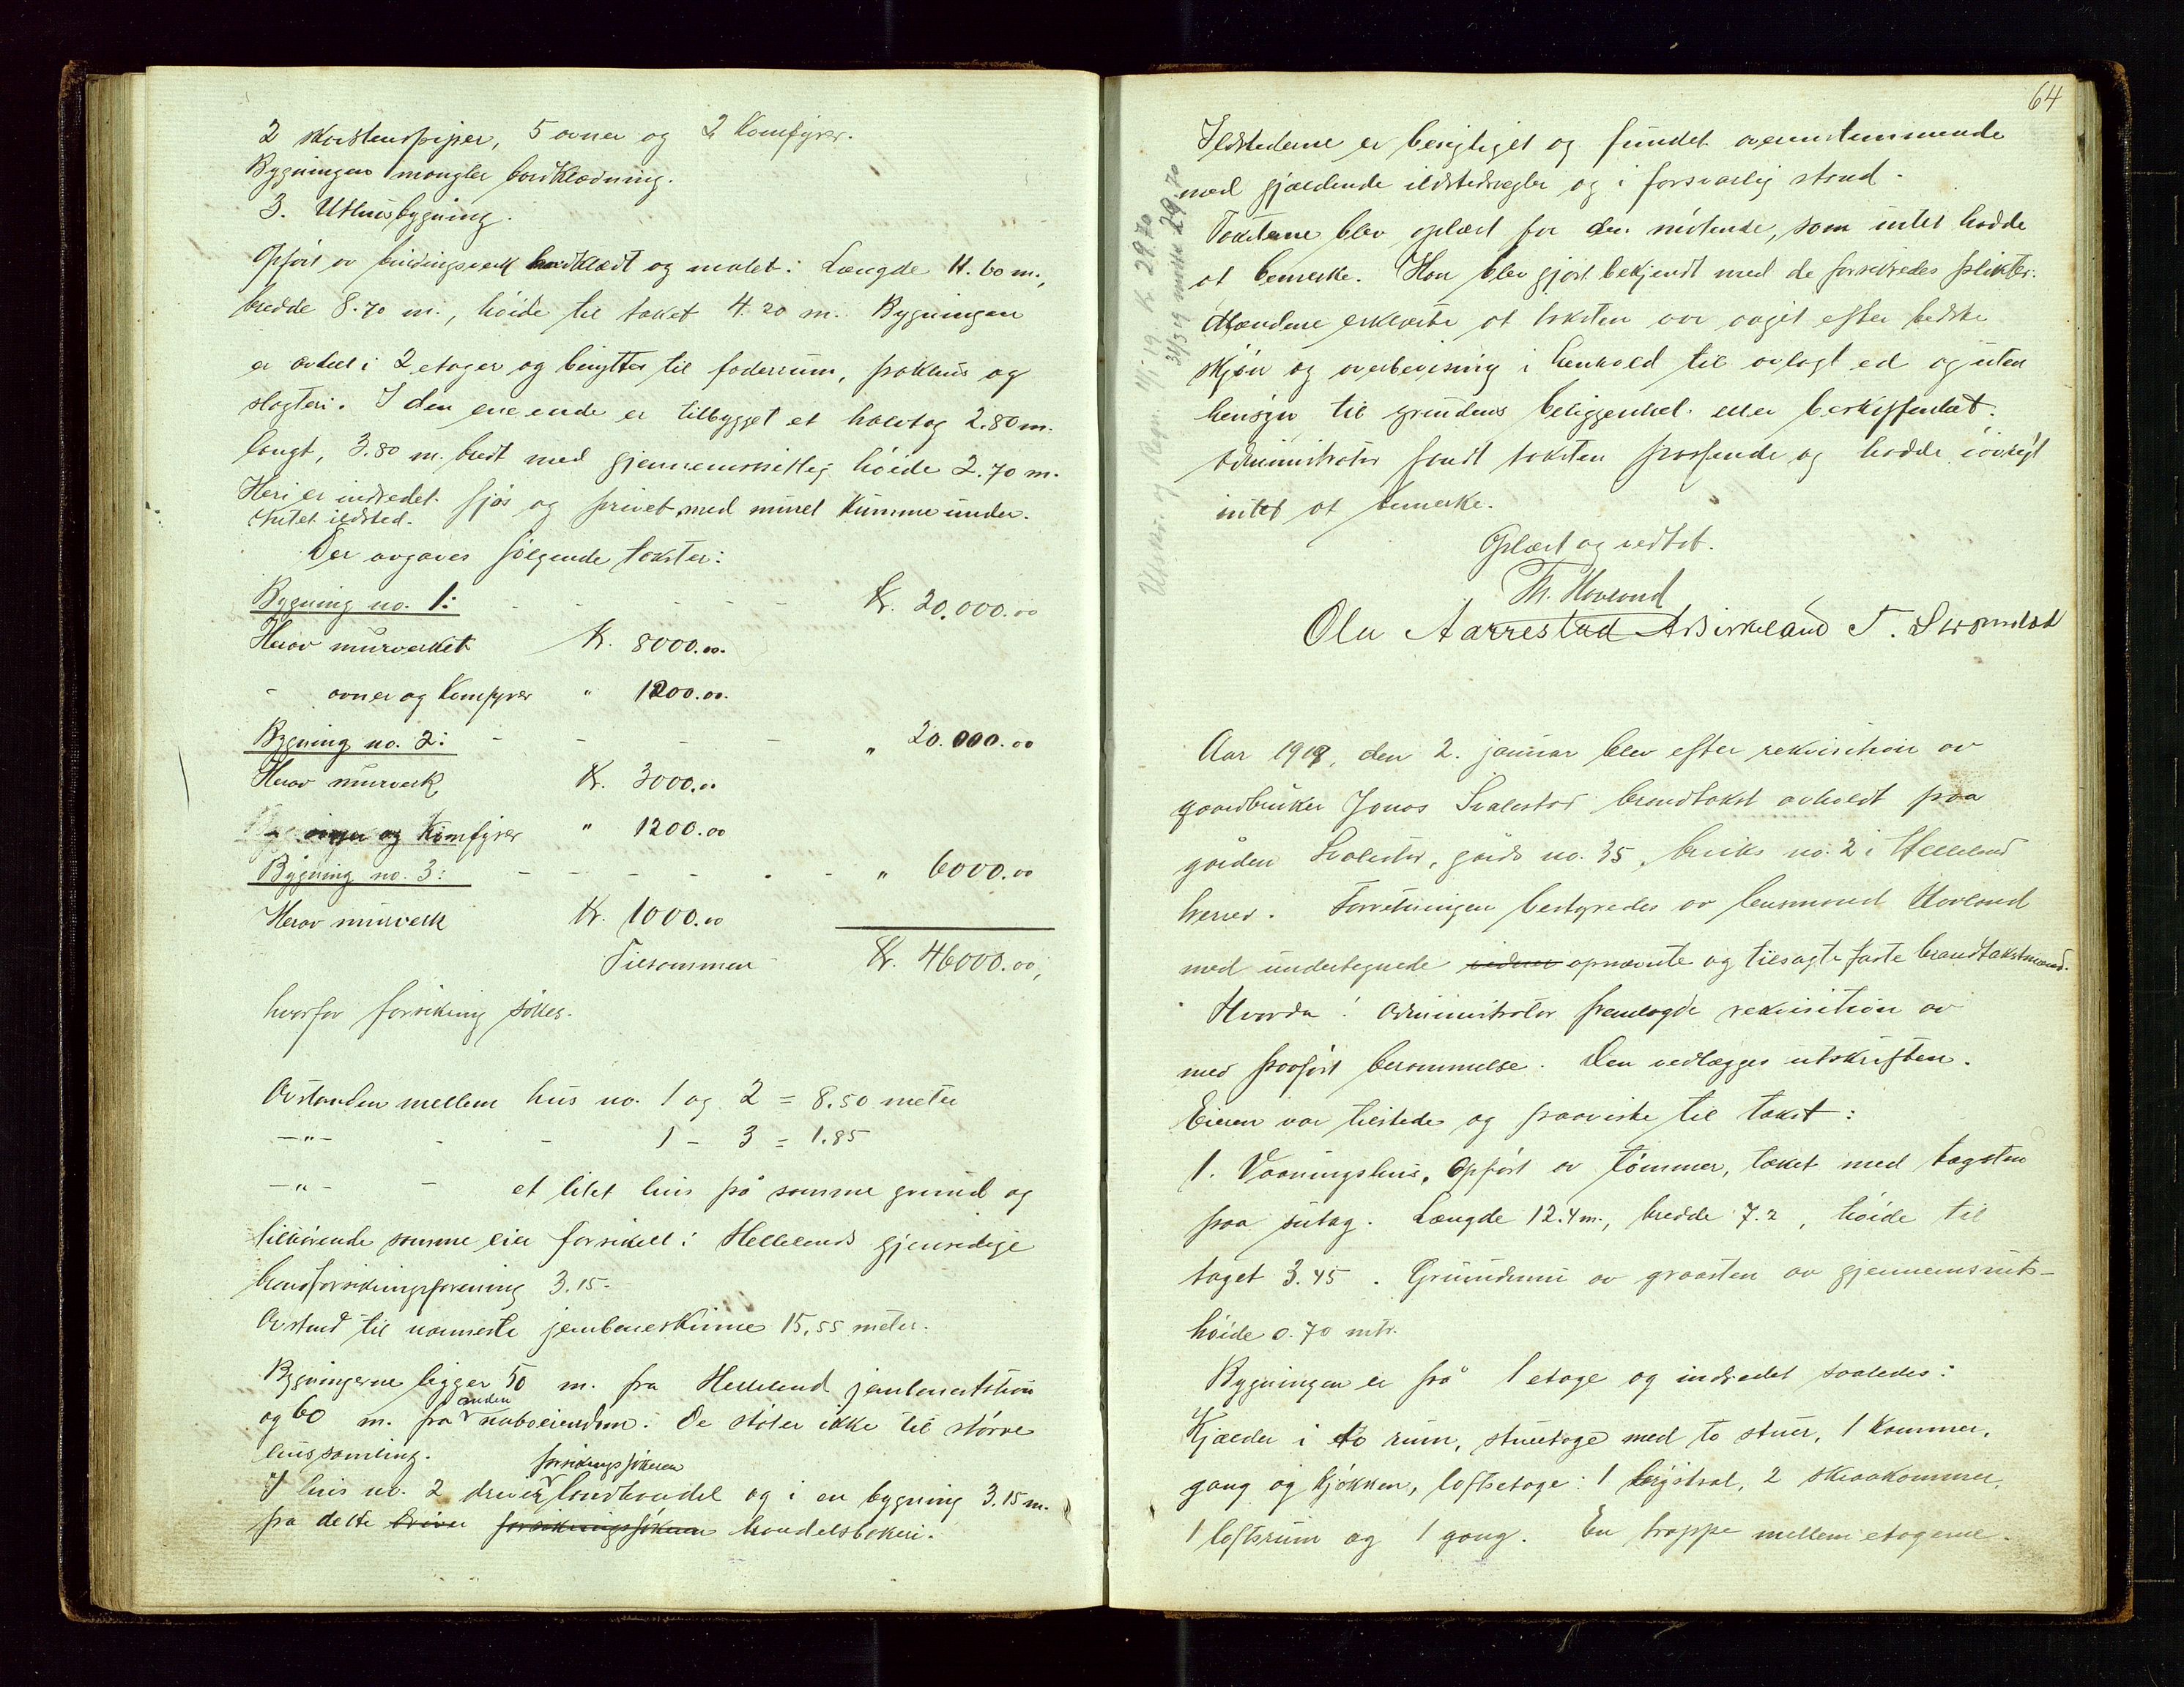 2 skorstenspiper, 5 ovner og 2 komfyrer.
Bygningen mangler bordklædning.
3. Uthusbygning.
Opført av bindingsverk bordklædt og malet: Længde 11.60 m.,
bredde 8.70 m., høide til taket 4.20 m. Bygningen
er avdelt i 2 etager og benyttes til foderrum, pakhus og
slagteri. I den ene ende er tilbygget et halvtag 2.80 m.
langt, 3.80 m. bredt med gjennemsnittlig høide 2.70 m.
Heri er indredet fjøs og privet med muret kumme under.
Intet ildsted.
Der avgaves følgende takster:
Bygning no. 1: - - - - - Kr. 20.000.00
Herav murverket Kr. 8000.00.
- ovner og komfyrer " 1200.00.
Bygning no. 2: - - - - " 20.000.00
Herav murverk Kr. 3000.00
- ovner og komfyrer " 1200.00
Bygning no. 3: - - - - - - " 6000.00
Herav murverk Kr. 1000.00
Tilsammen Kr. 46000.00,
hvorfor forsikring søkes.
Avstanden mellem hus no. 1 og 2 = 8.50 meter
-"- - - 1 - 3 = 1.85
-"- - et litet hus på samme grund og
tilhørende samme eier forsikret i Hellelands gjensidige
brandforsikringsforening 3.15.
Avstand til nærmeste jernbaneskinne 15,55 meter.
Bygningerne ligger 50 m. fra Helleland jernbanestation
og 60 m. fra anden naboeiendom. De støter ikke til større
hussamling.
I hus no. 2 driver forsikringssøkeren landhandel og i en bygning 3.15 m.
fra dette driver forsikringssøkeren handelsbakeri.
64
Ildstederne er besigtiget og fundet overenstemmende
med gjældende ildstedsregler og i forsvarlig stand.
Taksterne blev oplæst for den møtende, som intet hadde
at bemerke. Han blev gjort bekjendt med de forsikredes plikter.
Mændene erklærte at taksten var avgit efter bedste
skjøn og overbevisning i henhold til avlagt ed og uten
hensyn til grundens beliggenhet eller beskaffenhet.
Administrator fandt taksten passende og hadde iøvrigt
intet at bemerke.
Oplæst og vedtat.
Th. Hovland
Ola Aarrestad A Birkeland T.
Utskr. 19 K. 29.70
31/3 19 29.70
Aar 1919, den 2. januar blev efter rekvisition av
gaardbruker Jonas Svalestad brandtakst avholdt paa
gården Svalestad, gårds no. 35, bruks no. 2 i Helleland
herred. Forretningen bestyredes av lensmand Hovland
med undertegnede opnævnte og tilsagte faste brandtakstmænd.
Hvorda: Administrator fremlagde rekvisition av
med paaført berammelse. Den vedlægges utskriften.
Eieren var tilstede og paaviste til takst:
1. Vaaningshus, opført av tømmer, tækt med tagsten
paa sutag. Længde 12.4 m., bredde 7.2, høide til
taget 3.45. Grundmur av graasten av gjennemsnits-
høide 0.70 mtr.
Bygningen er på 1 etage og indredet saaledes:
Kjælder i to rum, stueetage med to stuer, 1 kammer,
gang og kjøkken, loftsetage: 1  2 skraakammer,
1 loftsrum og 1 gang. En trappe mellem etagerne.